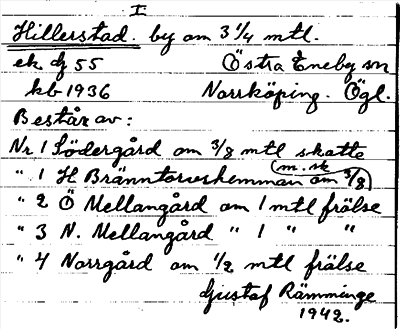 I
Hillerstad. by om 3 1/4 mtl.
ek bf 55 Östra Eneby sn
kb 1936 Norrköping. Ögl.
Består av:
Nr 1 Södergård om 3/8 mtl skatte
" 1 H Bränntorvshemman om 3/8 (m. sk)
" 2 Ö Mellangård om 1 mtl frälse
" 3 N. Mellangård " 1 " "
" 4 Norrgård om 1/2 mtl frälse
Gustaf Rämminge
1942.